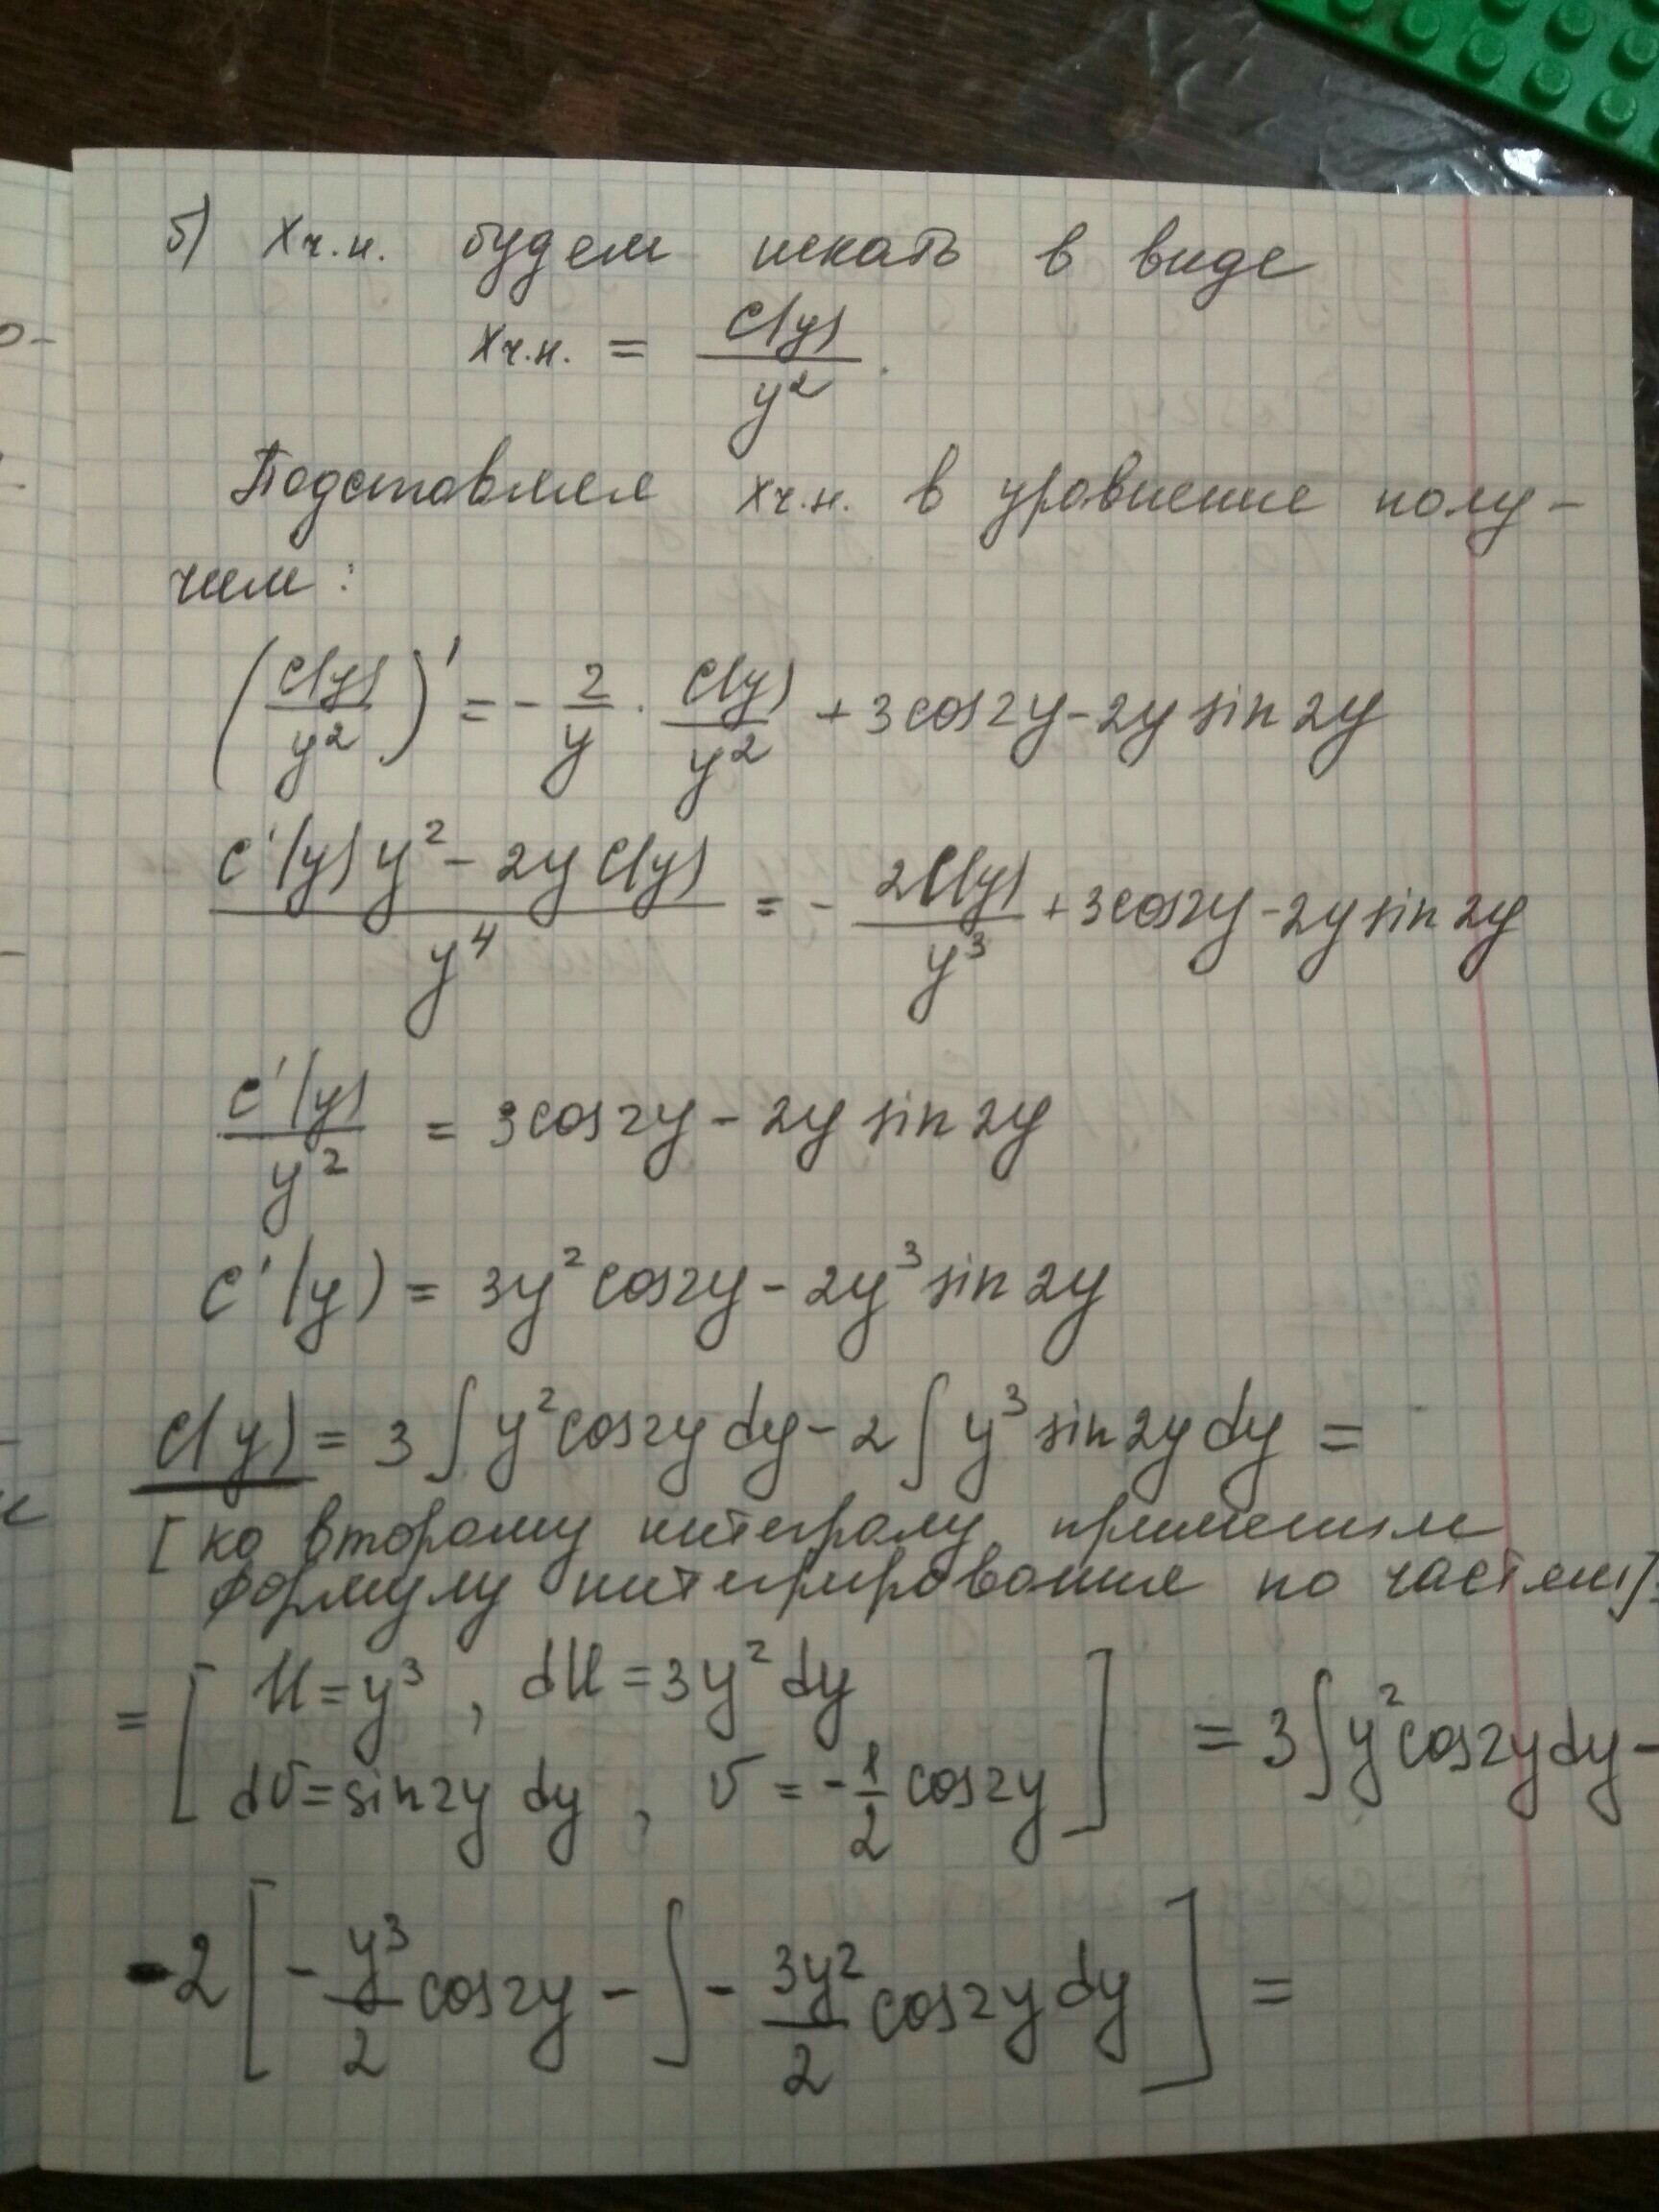 б) Xч.н. будем искать в виде
Xч.н. = C(y)/y².
Подставляя Xч.н. в уравнение полу-
чим:
(C(y)/y²)' = - 2/y · C(y)/y² + 3cos2y - 2y sin 2y
(C'(y) y² - 2y C(y))/y⁴ = - 2C(y)/y³ + 3cos2y - 2y sin 2y
C'(y)/y² = 3cos2y - 2y sin 2y
C'(y) = 3y² cos2y - 2y³ sin 2y
C(y) = 3∫y² cos2y dy - 2∫y³ sin 2y dy =
[ко второму интегралу применим
формулу интегрирования по частям]=
= [U = y³, dU = 3y² dy
dV = sin2y dy, V = -1/2 cos2y] = 3∫y² cos2y dy -
-2[- y³/2 cos2y - ∫ - 3y²/2 cos2y dy] =